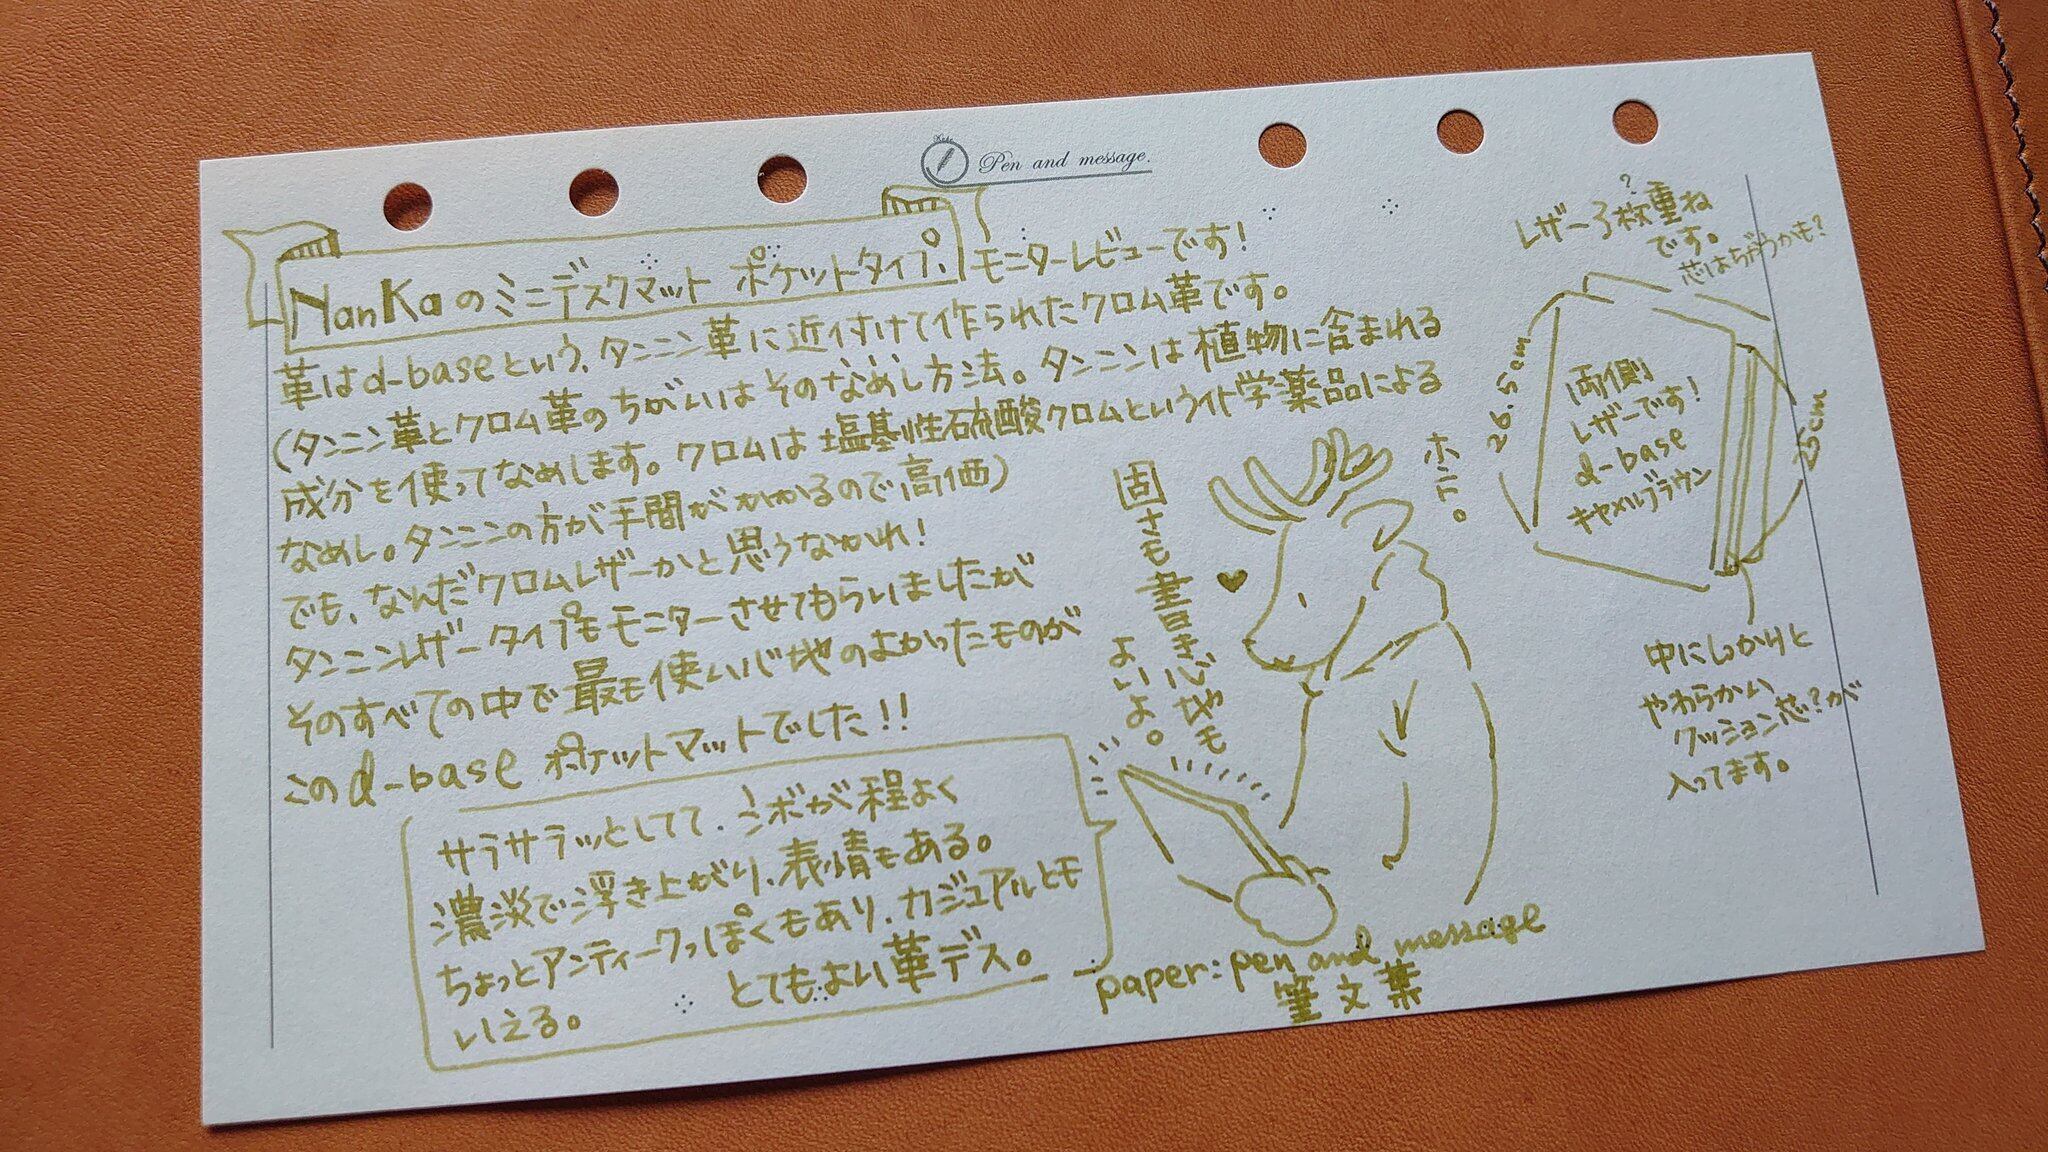 Pen and message.
NanKaのミニデスクマット ポケットタイプ、モニターレビューです!
革はd-baseという、タンニン革に近付けて作られたクロム革です。
(タンニン革とクロム革のちがいはそのなめし方法。タンニンは植物に含まれる
成分を使ってなめします。クロムは塩基性硫酸クロムという化学薬品による
なめし。タンニンの方が手間がかかるので高価)
でも、なんだクロムレザーかと思うなかれ!
タンニンレザータイプもモニターさせてもらいましたが
そのすべての中で最も使い心地のよかったものが
このd-base ポケットマットでした!!
サラサラッとしてて、シボが程よく
濃淡で浮き上がり、表情もある。
ちょっとアンティークっぽくもあり、カジュアルとも
いえる。 とてもよい革デス。
固さも書き心地も
よいよ。
ホラ。
レザー3枚?重ね
です。
芯はちがうかも?
26.5cm
25cm
両側
レザーです!
d-base
キャメルブラウン
中にしっかりと
やわらかい
クッション芯?が
入ってます。
paper: pen and message
筆文葉